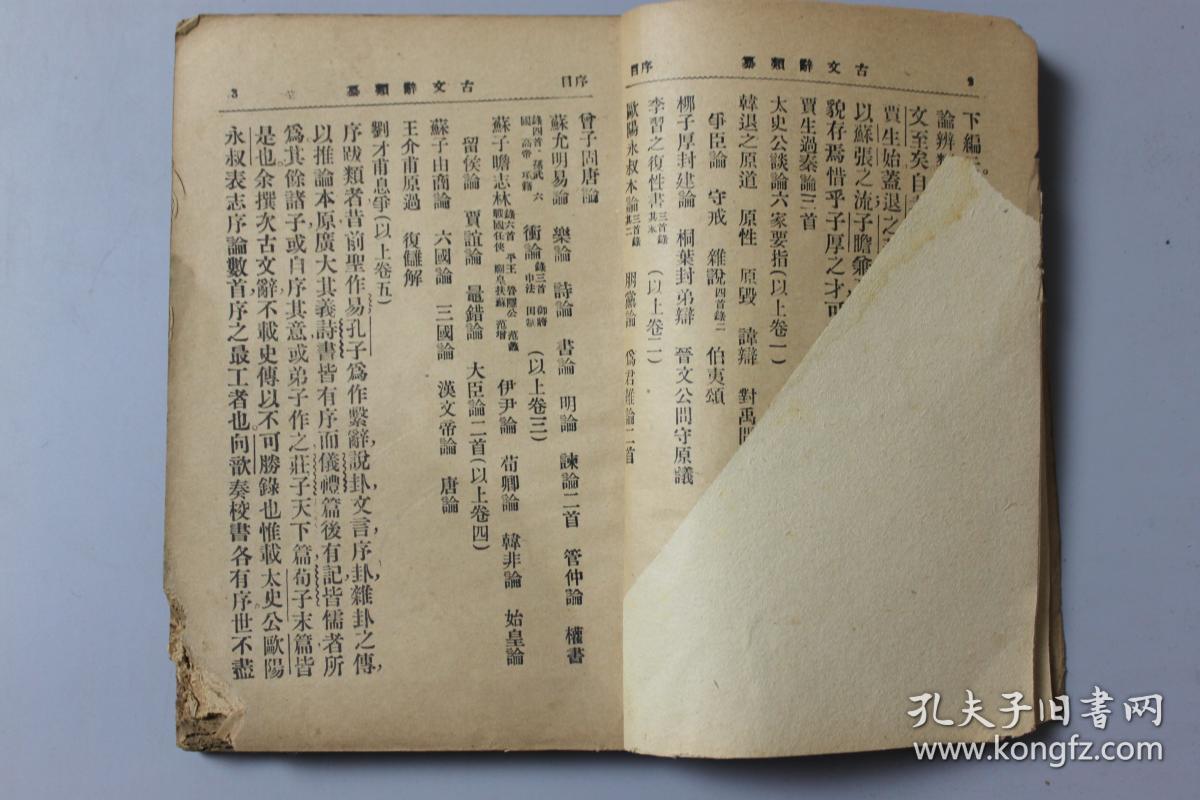 古文辭類纂
序目
下編
論辨類
文至矣自
賈生始蓋退之
以蘇張之流子瞻兼
貌存焉惜乎子厚之才可
賈生過秦論三首
太史公談論六家要指(以上卷一)
韓退之原道 原性 原毀 諱辯 對禹問
爭臣論 守戒 雜說四首錄二 伯夷頌
柳子厚封建論 桐葉封弟辯 晉文公問守原議
李習之復性書三首錄其末 (以上卷二)
歐陽永叔本論三首錄其二 朋黨論 爲君難論二首
古文辭類纂
序目
3
曾子固唐論
蘇允明易論 樂論 詩論 書論 明論 諫論二首 管仲論 權書
錄四首 孫武 六國 高帝 項籍 衡論錄三首 御將 申法 田制 (以上卷三)
蘇子瞻志林錄六首 平王 魯隱公 范蠡 戰國任俠 始皇扶蘇 范增 伊尹論 荀卿論 韓非論 始皇論
留侯論 賈誼論 鼂錯論 大臣論二首(以上卷四)
蘇子由商論 六國論 三國論 漢文帝論 唐論
王介甫原過 復讎解
劉才甫息爭(以上卷五)
序跋類者昔前聖作易孔子爲作繫辭說卦文言序卦雜卦之傳
以推論本原廣大其義詩書皆有序而儀禮篇後有記皆儒者所
爲其餘諸子或自序其意或弟子作之莊子天下篇荀子末篇皆
是也余撰次古文辭不載史傳以不可勝錄也惟載太史公歐陽
永叔表志序論數首序之最工者也向歆奏校書各有序世不盡
孔夫子旧书网
www.kongfz.com